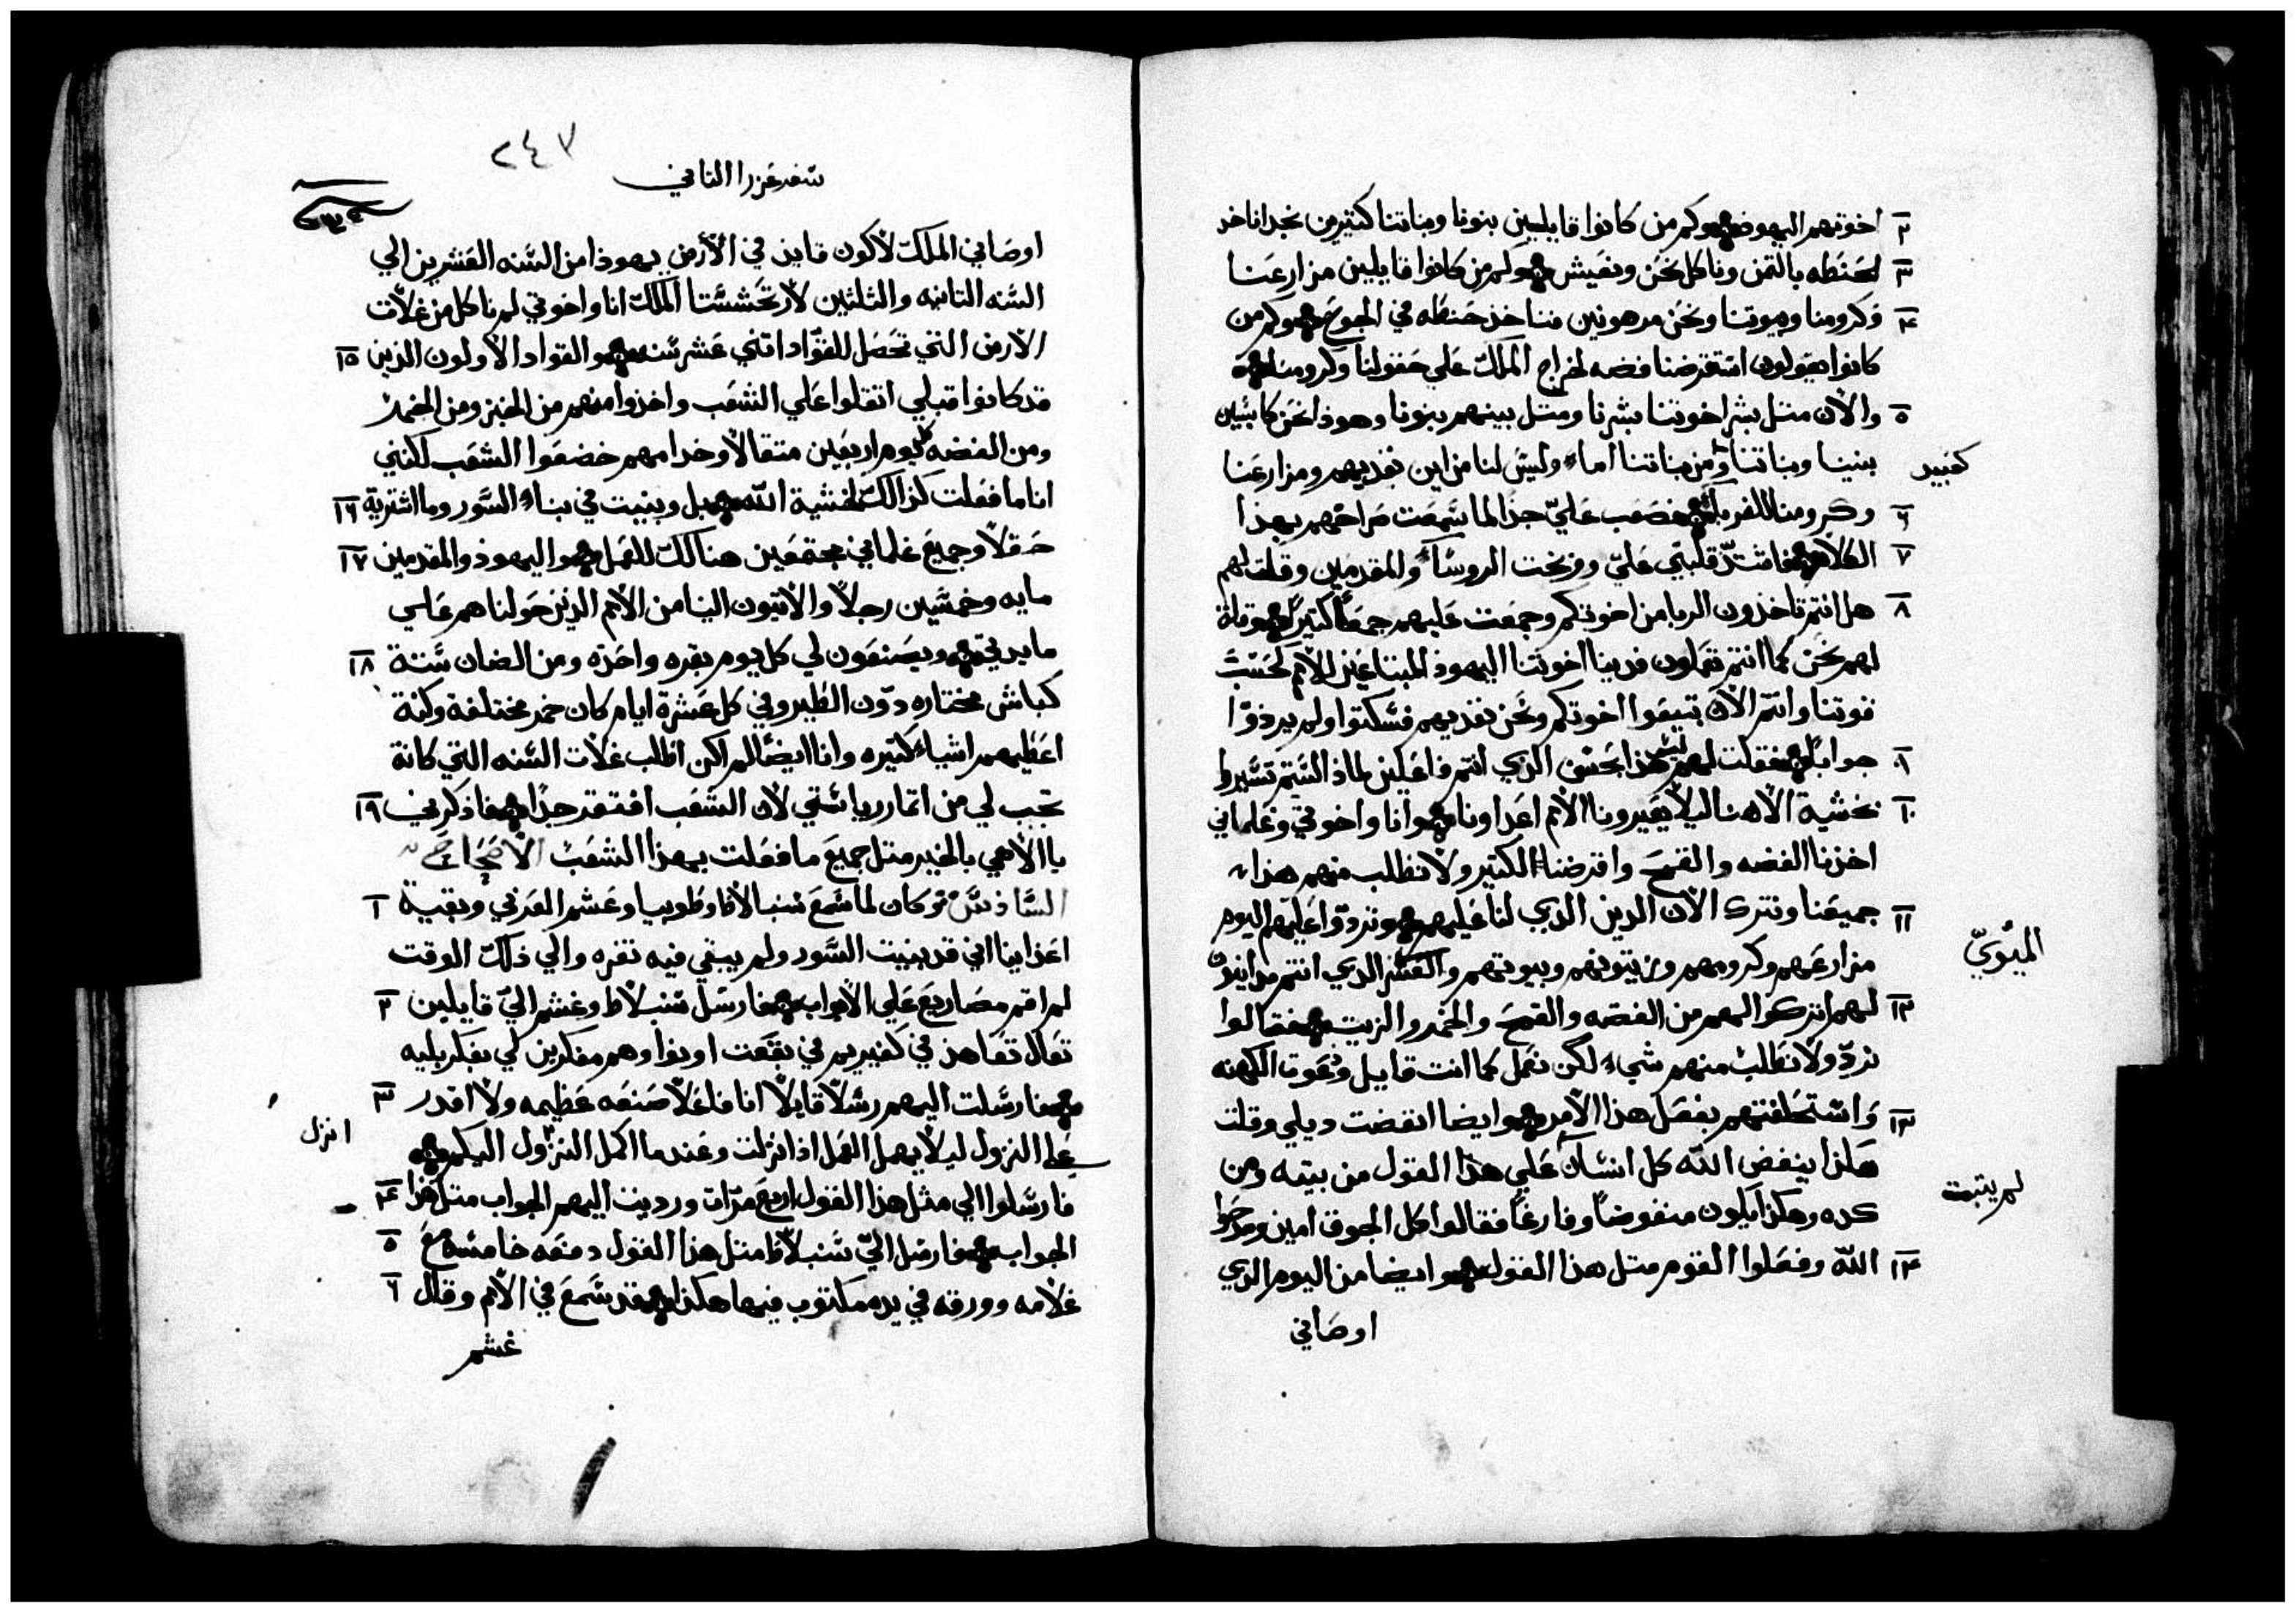 ٢ اخوتهم اليهود وكم من كانوا قايليين بنونا وبناتنا كتيرين نجدا ناخد
٣ لحنطه بالتمن وناكل نحن ونعيش وكم من كانوا قايلين مزارعنا
٤ وكرومنا وبيوتنا ونحن مرهونين نناخذ حنطه في الجوع وكم من
كانوا يقولون استقرضنا فضه لخراج الملك علي حقولنا وكرومنا
٥ والان متل بشر اخوتنا بشرنا ومتل بينهم بنونا وهوذا نحن كابتين
بنينا وبناتنا ومن بناتنا اماء وليس لنا من اين نفديهم ومزارعنا
كعبيد
٦ وكرومنا للغربا فصعب عليّ جدا لما سمعت صراخهم بهذا
٧ الكلام فاشتدّ قلبي عليّ ووبخت الروساء والمقدمين وقلت لهم
٨ هل انتم تاخذون الربا من اخوتكم وجمعت عليهم جمعًا كتيرًا وقلت
لهم نحن كما انتم تعملون فدينا اخوتنا اليهود المبتاعين للامم كحسب
قوتنا وانتم الان تبيعوا اخوتكم ونحن نفديهم فسكتوا ولم يردوا
٩ جوابًا فقلت لهم ليس هذا بحسن الذي انتم فاعلين لماذا لستم تسيروا
١٠ بخشية الاهنا ليلا يعيرونا الامم اعداونا وانا واخوتي وغلماني
اخذنا الفضه والقمح واقرضنا الكتير ولا نطلب منهم هذا
١١ جميعنا ونترك الان الدين الذي لنا عليهم وتردّوا عليهم اليوم
مزارعهم وكرومهم وزيتونهم وبيوتهم والعشر الذي انتم
الميوي
١٢ لهم اتركوا لهم من الفضه والقمح والخمر والزيت فقالوا
نردّ ولا نطلب منهم شيء لكن نعمل كما انت قايل ودعوت الكهنه
١٣ واستحلفتهم بفعل هذا الامر وايضا انفضت ديلي وقلت
هكذا ينفض الله كل انسان علي هذا القول من بيته ومن
لم يتبت
كده وهكذا يكون منفوضًا وفارغًا فقالوا كل الجوق امين ومدحوا
١٤ الله وفعلوا القوم متل هذا القول وايضا من اليوم الذي
اوصاني
٢٤٧
سفر عزرا الثاني
اوصاني الملك لاكون قاين في الارض يهوذا من السنه العشرين الي
السنه التانيه والثلثين لارتحششتا الملك انا واخوتي لم ناكل من غلات
الارض التي تحصل للقوّاد اتني عشر سنه والقواد الاولون الذين ١٥
قد كانوا قبلي اتقلوا علي الشعب واخذوا منهم من الخبز ومن الخمر
ومن الفضه كل يوم اربعين متقالا وخدامهم خضعوا الشعب لكني
انا ما فعلت كذالك لخشية الله بل وبنيت في بناء السور وما اشتريت ١٦
حقلاً وجميع غلماني مجتمعين هنالك للعمل واليهود والمقدمين ١٧
مايه وخمسين رجلاً والاتيون الينا من الامم الذين حولنا هم علي
مايدتي ويصنعون لي كل يوم بقره واحده ومن الضان ستة ١٨
كباش مختاره دون الطير وفي كل عشرة ايام كان خمر مختلفه وكنة
اعطيهم اشياء كتيره وانا ايضًا لم اكن اطلب غلات السنه التي كانة
تجب لي من اتمار رياستي لان الشعب افتقر جدًا فاذكرني ١٩
يا الاهي بالخير متل جميع ما فعلت بهذا الشعب الاصحاح
السادس وكان لما سمع سنبالاط وطوبيا وعشم العربي وبقية ١
اعداينا اني قد بنيت السور ولم يبقي فيه تغره والي ذلك الوقت
لم اقم مصاريع علي الابواب فارسل سنبلاط وغشم اليّ قايلين ٢
تعال نتعاهد في كفيريم في بقعت اونوا وهم مفكرين لي بفكر بليه
فارسلت اليهم رسلًا قايلًا انا فاعلًا صنعه عظيمه ولا اقدر ٣
علي النزول ليلا يهمل العمل اذا نزلت وعندما اكمل النزول اليكم
انزل
فارسلوا الي مثل هذا القول اربع مرّات ورديت اليهم الجواب متل هذا ٤
الجواب فارسل اليّ سنبلاط متل هذا القول دفعه خامسه مع ٥
غلامه وورقه في يده مكتوب فيها هكذا قد سمع في الامم وقال ٦
غشم